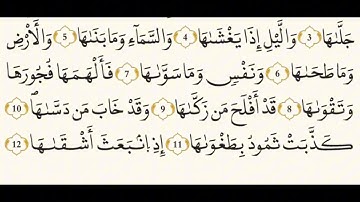 جَلَّىٰهَا 3 وَالَّيْلِ إِذَا يَغْشَىٰهَا 4 وَالسَّمَآءِ وَمَا بَنَىٰهَا 5 وَالْأَرْضِ
وَمَا طَحَىٰهَا 6 وَنَفْسٍ وَمَا سَوَّىٰهَا 7 فَأَلْهَمَهَا فُجُورَهَا
وَتَقْوَىٰهَا 8 قَدْ أَفْلَحَ مَن زَكَّىٰهَا 9 وَقَدْ خَابَ مَن دَسَّىٰهَا 10
كَذَّبَتْ ثَمُودُ بِطَغْوَىٰهَا 11 إِذِ انۢبَعَثَ أَشْقَىٰهَا 12